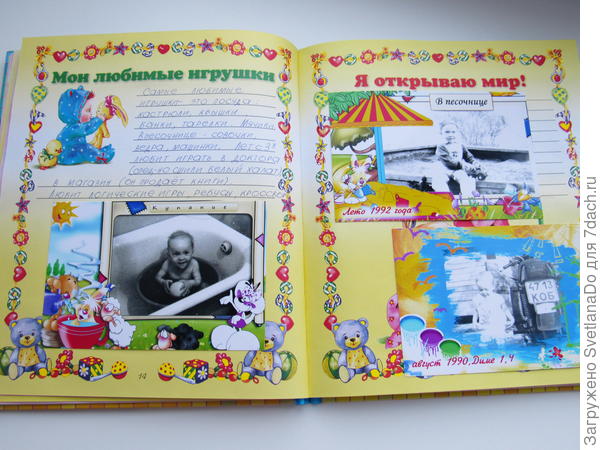 Мои любимые игрушки
Самые любимые
игрушки - это посуда:
кастрюли, крышки
банки, тарелки. Мячики.
В песочнице - совочки,
ведра, машинки. Лето
любит играть в доктора
сшили белый халат)
в магазин (он продаёт книги)
Любит логические игры, ребусы, кроссв
Купание
14
Я открываю мир!
В песочнице
Лето 1992 года
4713
КОБ
август 1990, Диме 1,4
Загружено SvetlanaDo для 7dach.ru